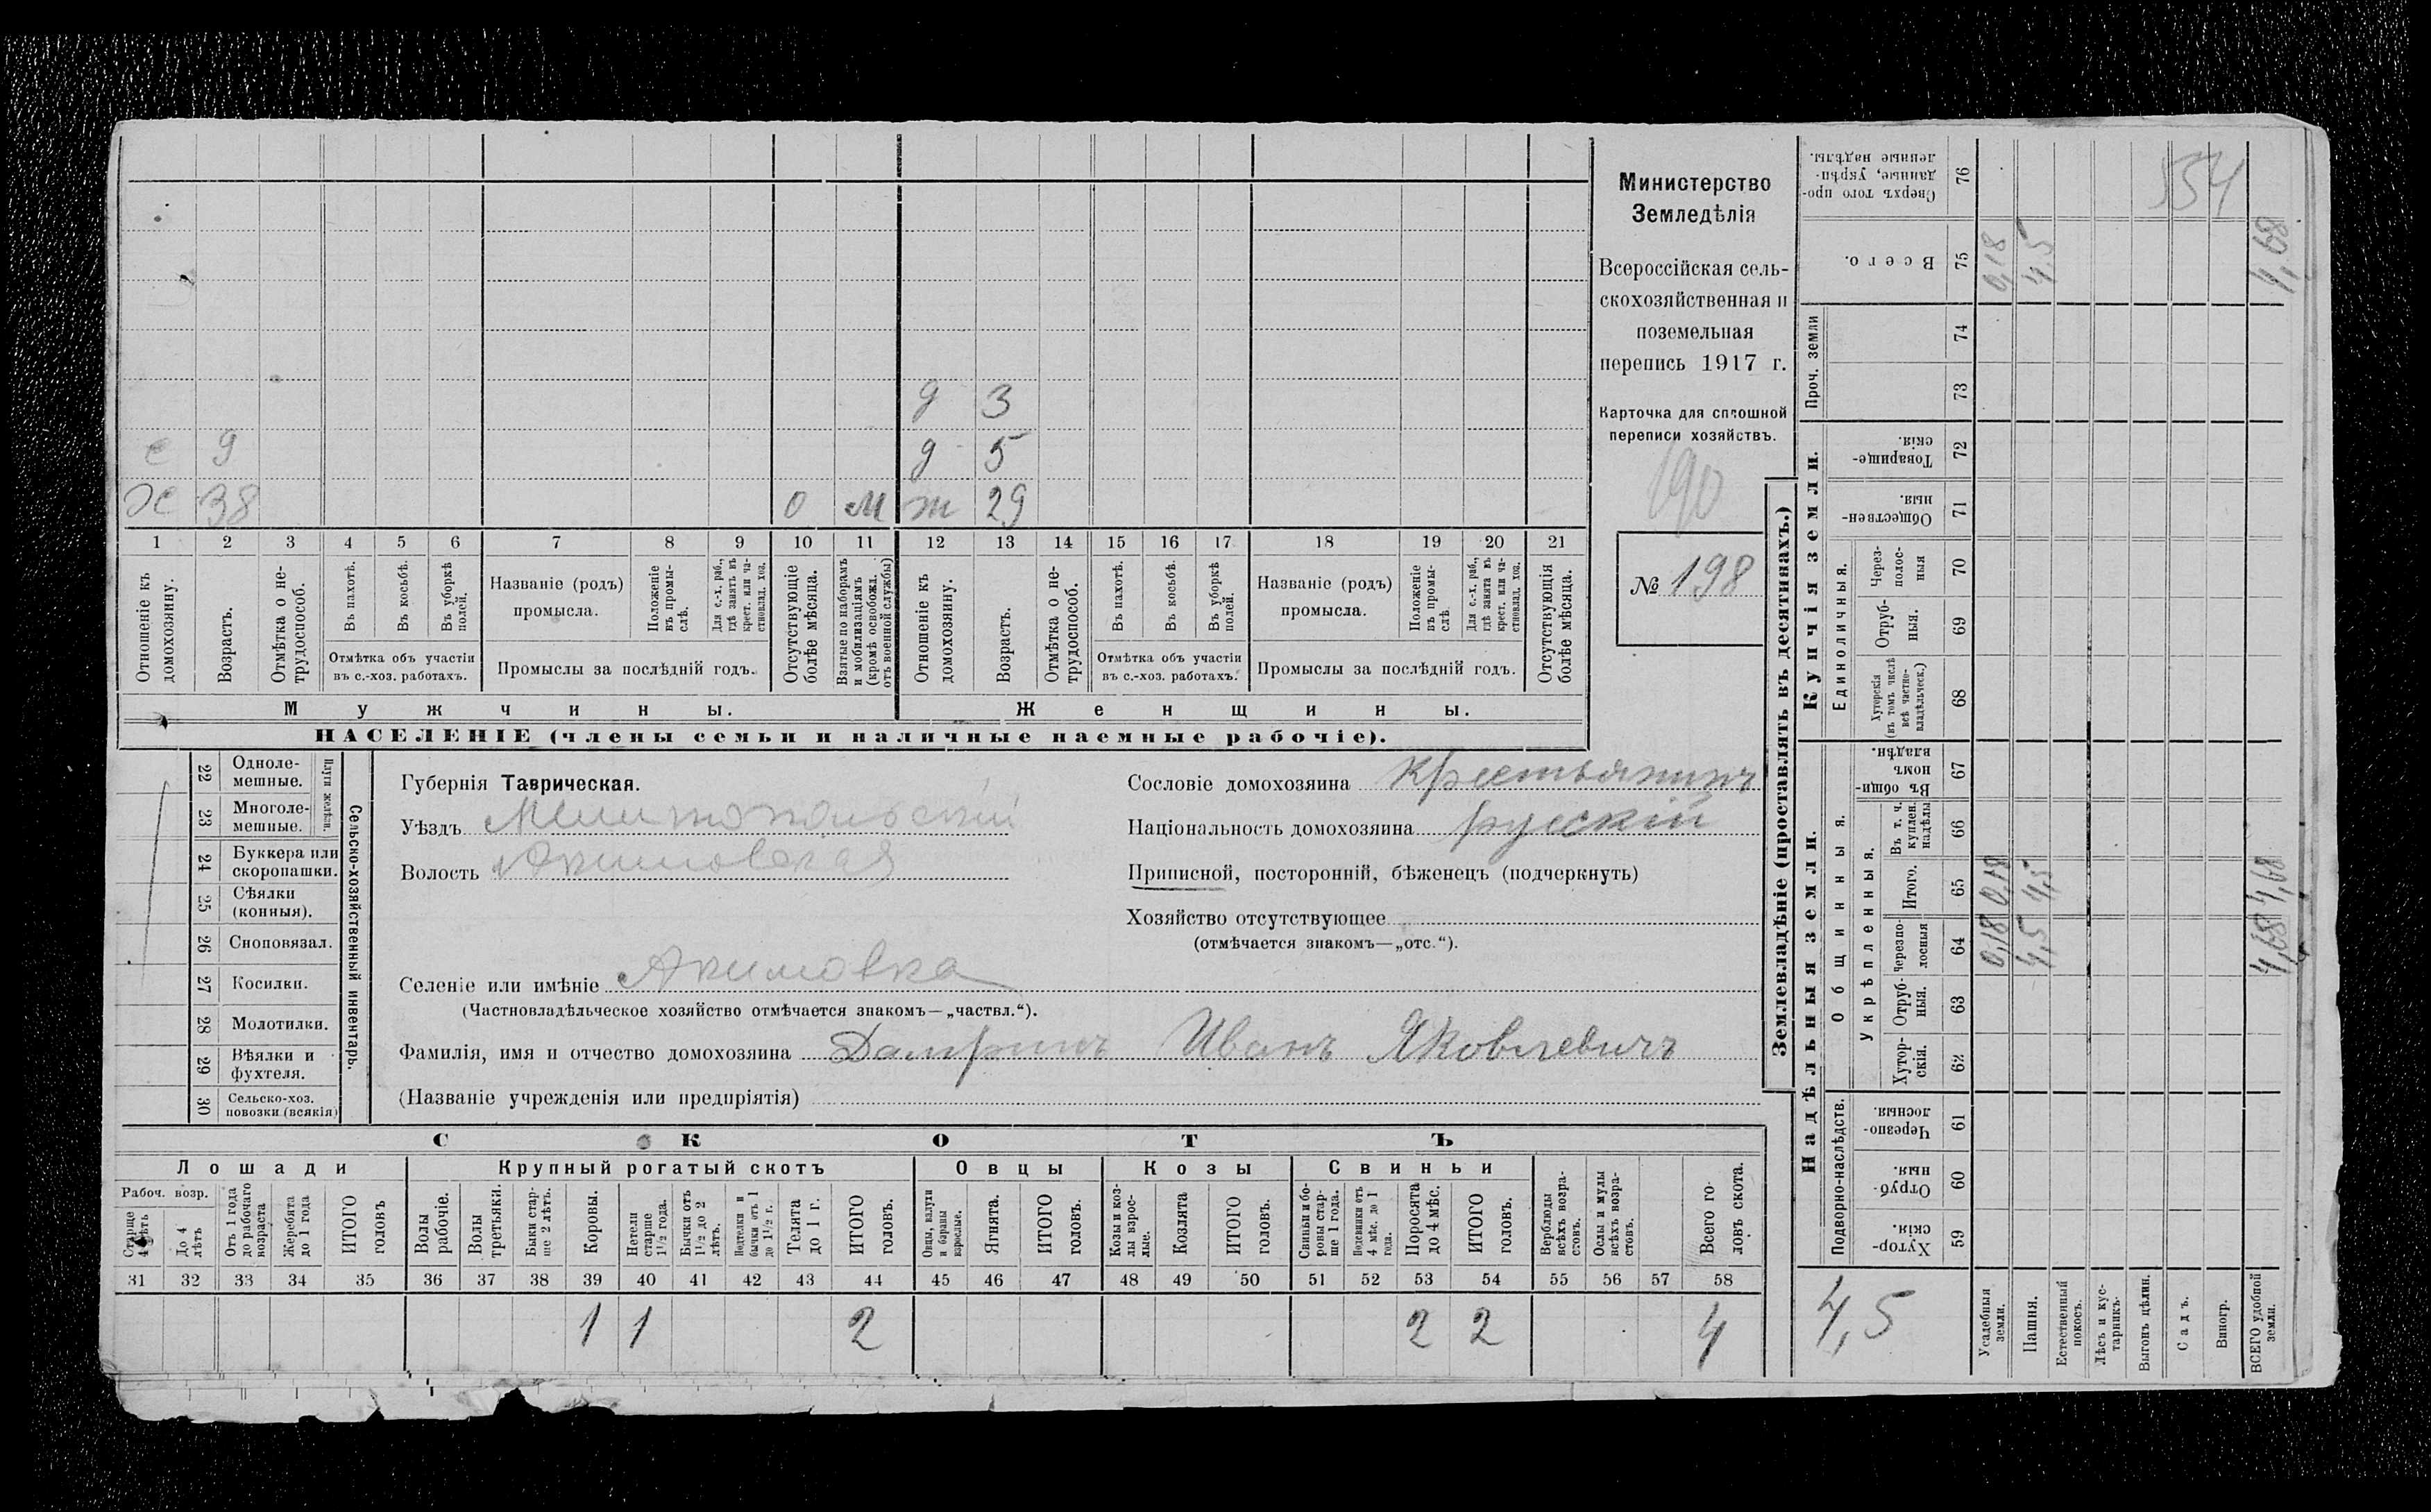 д 3
с 9 д 5
Х 38 о м ж 29
1 2 3 4 5 6 7 8 9 10 11 12 13 14 15 16 17 18 19 20 21
Отношеніе къ домохозяину.
Возрастъ.
Отмѣтка о не-трудоспособ.
Въ пахотѣ.
Въ косьбѣ.
Въ уборкѣ полей.
Отмѣтка объ участіи
въ с.-хоз. работахъ.
Названіе (родъ)
промысла.
Положеніе въ промы-слѣ.
Для с.-х. раб., гдѣ занятъ въ крест. или ча-стновлад. хоз.
Промыслы за послѣдній годъ.
Отсутствующіе болѣе мѣсяца.
Взятые по наборамъ и мобилизаціямъ (кромѣ освобожд. отъ военной службы)
Отношеніе къ домохозяину.
Возрастъ.
Отмѣтка о не-трудоспособ.
Въ пахотѣ.
Въ косьбѣ.
Въ уборкѣ полей.
Отмѣтка объ участіи
въ с.-хоз. работахъ.
Названіе (родъ)
промысла.
Положеніе въ промы-слѣ
Для с.-х. раб., гдѣ занята въ крест. или ча-стновлад. хоз.
Промыслы за послѣдній годъ.
Отсутствующія болѣе мѣсяца.
Мужчины. Женщины.
НАСЕЛЕНІЕ (члены семьи и наличные наемные рабочіе).
Министерство
Земледѣлія
Всероссійская сель-
скохозяйственная и
поземельная
перепись 1917 г.
Карточка для сплошной
переписи хозяйствъ.
190
№ 198
22 Одноле-мешные.
23 Многоле-мешные.
Плуги желѣзн.
24 Буккера или скоропашки.
25 Сѣялки (конныя).
26 Сноповязал.
27 Косилки.
28 Молотилки.
29 Вѣялки и фухтеля.
30 Сельско-хоз. повозки (всякія)
Сельско-хозяйственный инвентарь.
Губернія Таврическая.
Уѣздъ Мелитопольскій
Волость Акимовская
Селеніе или имѣніе Акимовка
(Частновладѣльческое хозяйство отмѣчается знакомъ—„частвл.“).
Фамилія, имя и отчество домохозяина Иванъ Яковлевичъ
(Названіе учрежденія или предпріятія)
Сословіе домохозяина Крестьянинъ
Національность домохозяина русскій
Приписной, посторонній, бѣженецъ (подчеркнуть)
Хозяйство отсутствующее
(отмѣчается знакомъ—„отс.“).
СКОТЪ
Лошади Крупный рогатый скотъ Овцы Козы Свиньи
Рабоч. возр.
Старше 4 лѣтъ
До 4 лѣтъ
Отъ 1 года до рабочаго возраста
Жеребята до 1 года
ИТОГО головъ
Волы рабочіе.
Волы третьяки.
Быки стар-ше 2 лѣтъ.
Коровы.
Нетели старше 1½ года.
Бычки отъ 1½ до 2 лѣтъ.
Подтелки и бычки отъ 1 до 1½ г.
Телята до 1 г.
ИТОГО головъ.
Овцы, валухи и бараны взрослые.
Ягнята.
ИТОГО головъ.
Козы и коз-лы взрос-лые.
Козлята
ИТОГО головъ.
Свиньи и бо-ровы стар-ше 1 года.
Подсвинки отъ 4 мѣс. до 1 года.
Поросята до 4 мѣс.
ИТОГО головъ.
Верблюды всѣхъ возра-стовъ.
Ослы и мулы всѣхъ возра-стовъ.
Всего го-ловъ скота.
31 32 33 34 35 36 37 38 39 40 41 42 43 44 45 46 47 48 49 50 51 52 53 54 55 56 57 58
1 1 2 2 2 4
Землевладѣніе (проставлять въ десятинахъ.)
Надѣльныя земли. Купчія земли. Проч. земли
Подворно-наслѣдств.
Общинныя.
Укрѣпленныя.
Единоличныя.
Хутор-скія. 59
Отруб-ныя. 60
Черезпо-лосныя. 61
Хутор-скія. 62
Отруб-ныя. 63
Черезпо-лосныя 64
Итого. 65
Въ т. ч. куплен. надѣлы 66
Въ общи-номъ владѣн. 67
Хуторскія (въ томъ числѣ всѣ частно-владѣльческ.) 68
Отруб-ныя. 69
Через-полос-ныя 70
Обществен-ныя. 71
Товарище-скія. 72
73
74
Всего. 75
Сверхъ того про-данные, укрѣп-ленные надѣлы. 76
4,5
Усадебныя земли. 0,18 0,18 0,18
Пашня. 4,5 4,5 4,5
Естественный покосъ.
Лѣсъ и кус-тарникъ.
Выгонъ цѣлин.
Садъ.
Виногр.
ВСЕГО удобной земли. 4,68 4,68 4,68
554